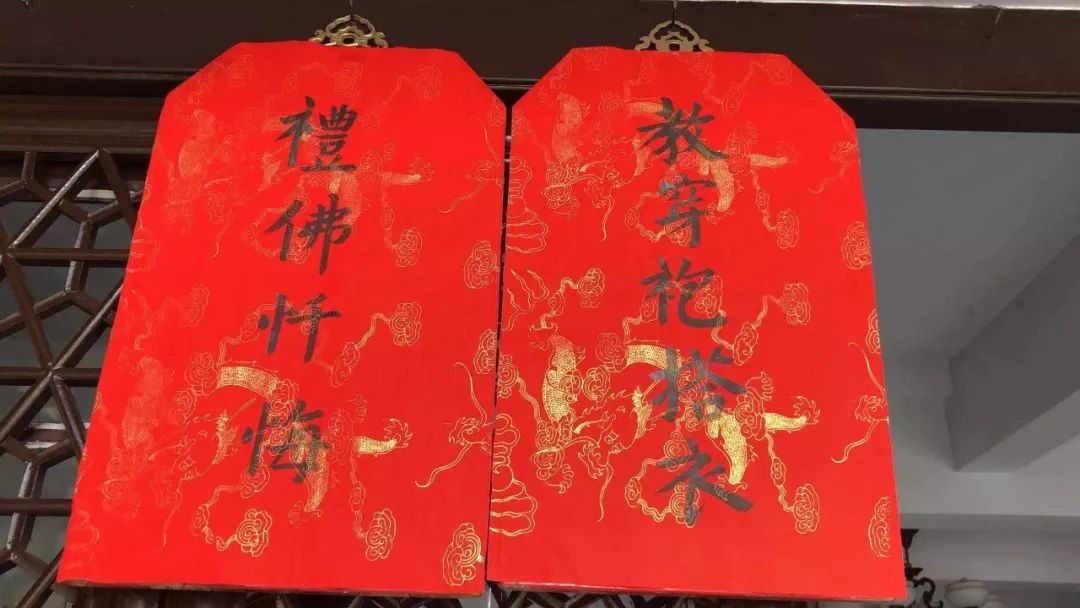 教穿袍搭衣
禮佛忏悔